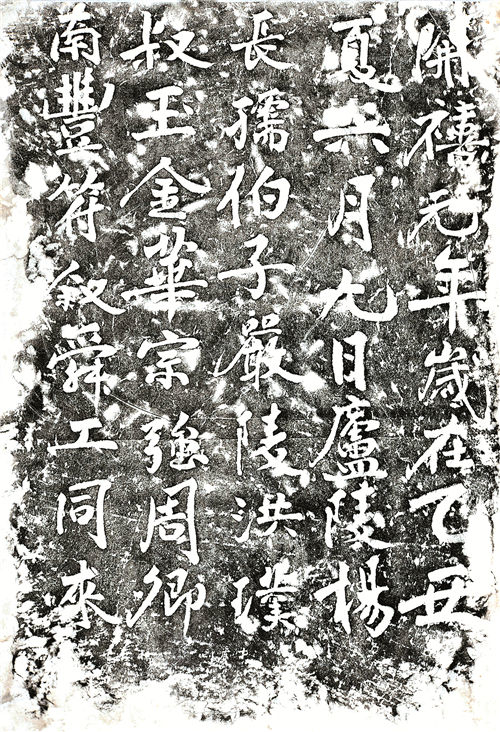 開禧元年歲在乙丑
夏六月九日廬陵楊
長孺伯子嚴陵洪璞
叔玉金華宗強周卿
南豐符叙舜工同來